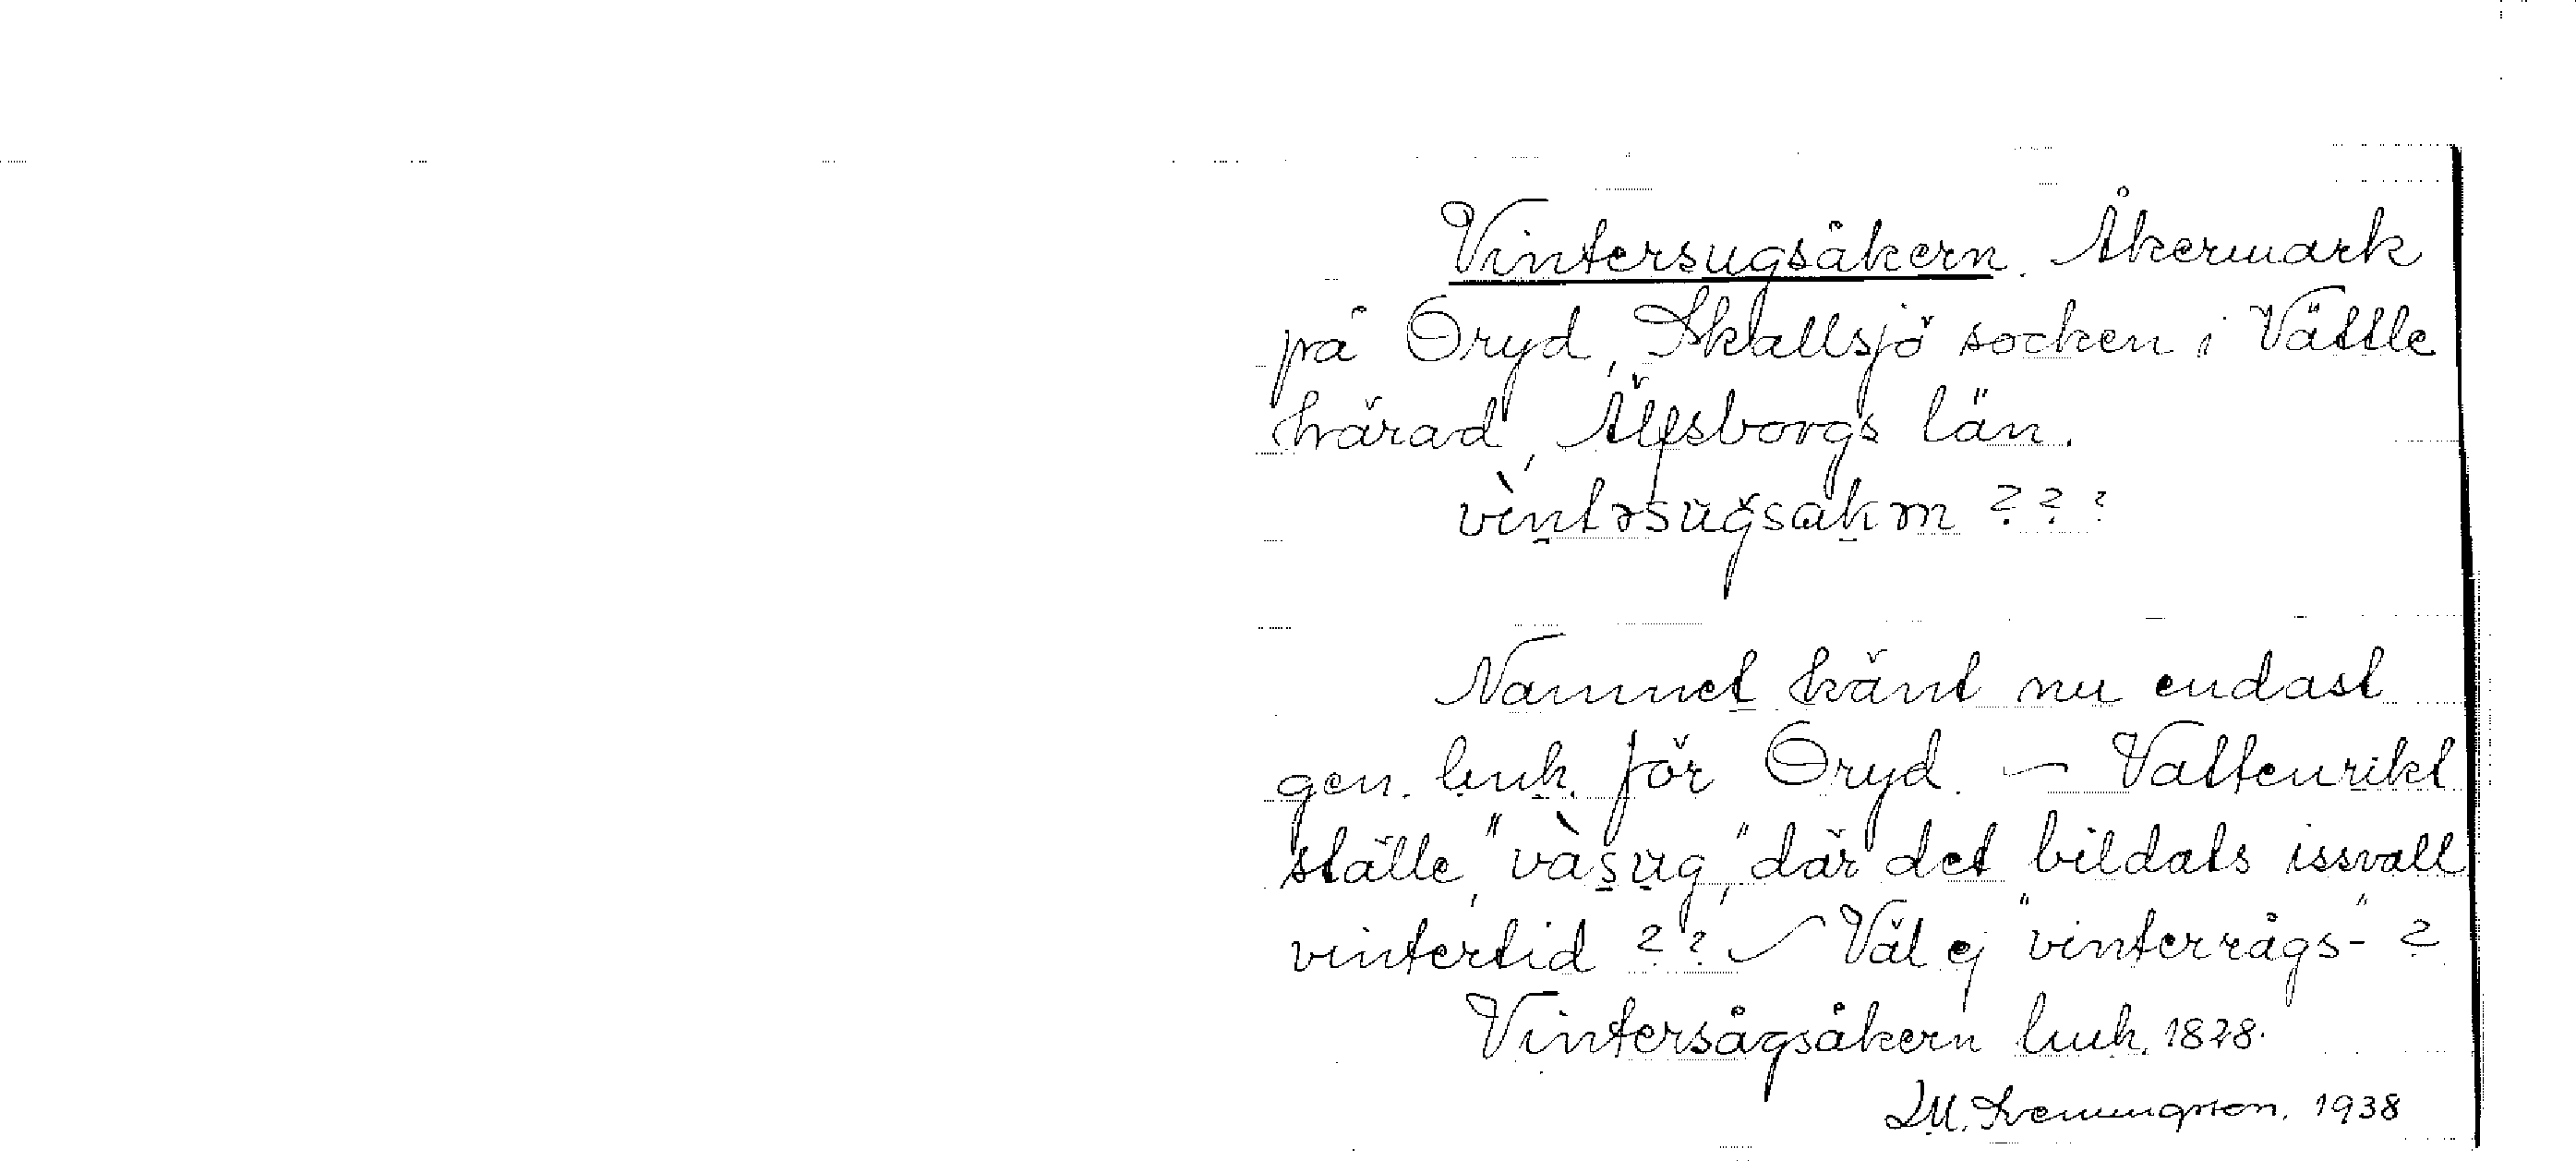 Vintersugsåkern. Åkermark
på Öryd, Skallsjö socken i Vättle
härad, Älfsborgs län.
vìntərsugsakərn ???
Namnet känt nu endast
gen. luuk. för Öryd. – Vattenrikt
ställe, "vàsug", där det bildats issvall
vintertid ?? – Väl ej "vinterrågs-" ?
Vintersågsåkern luuk. 1828.
1938